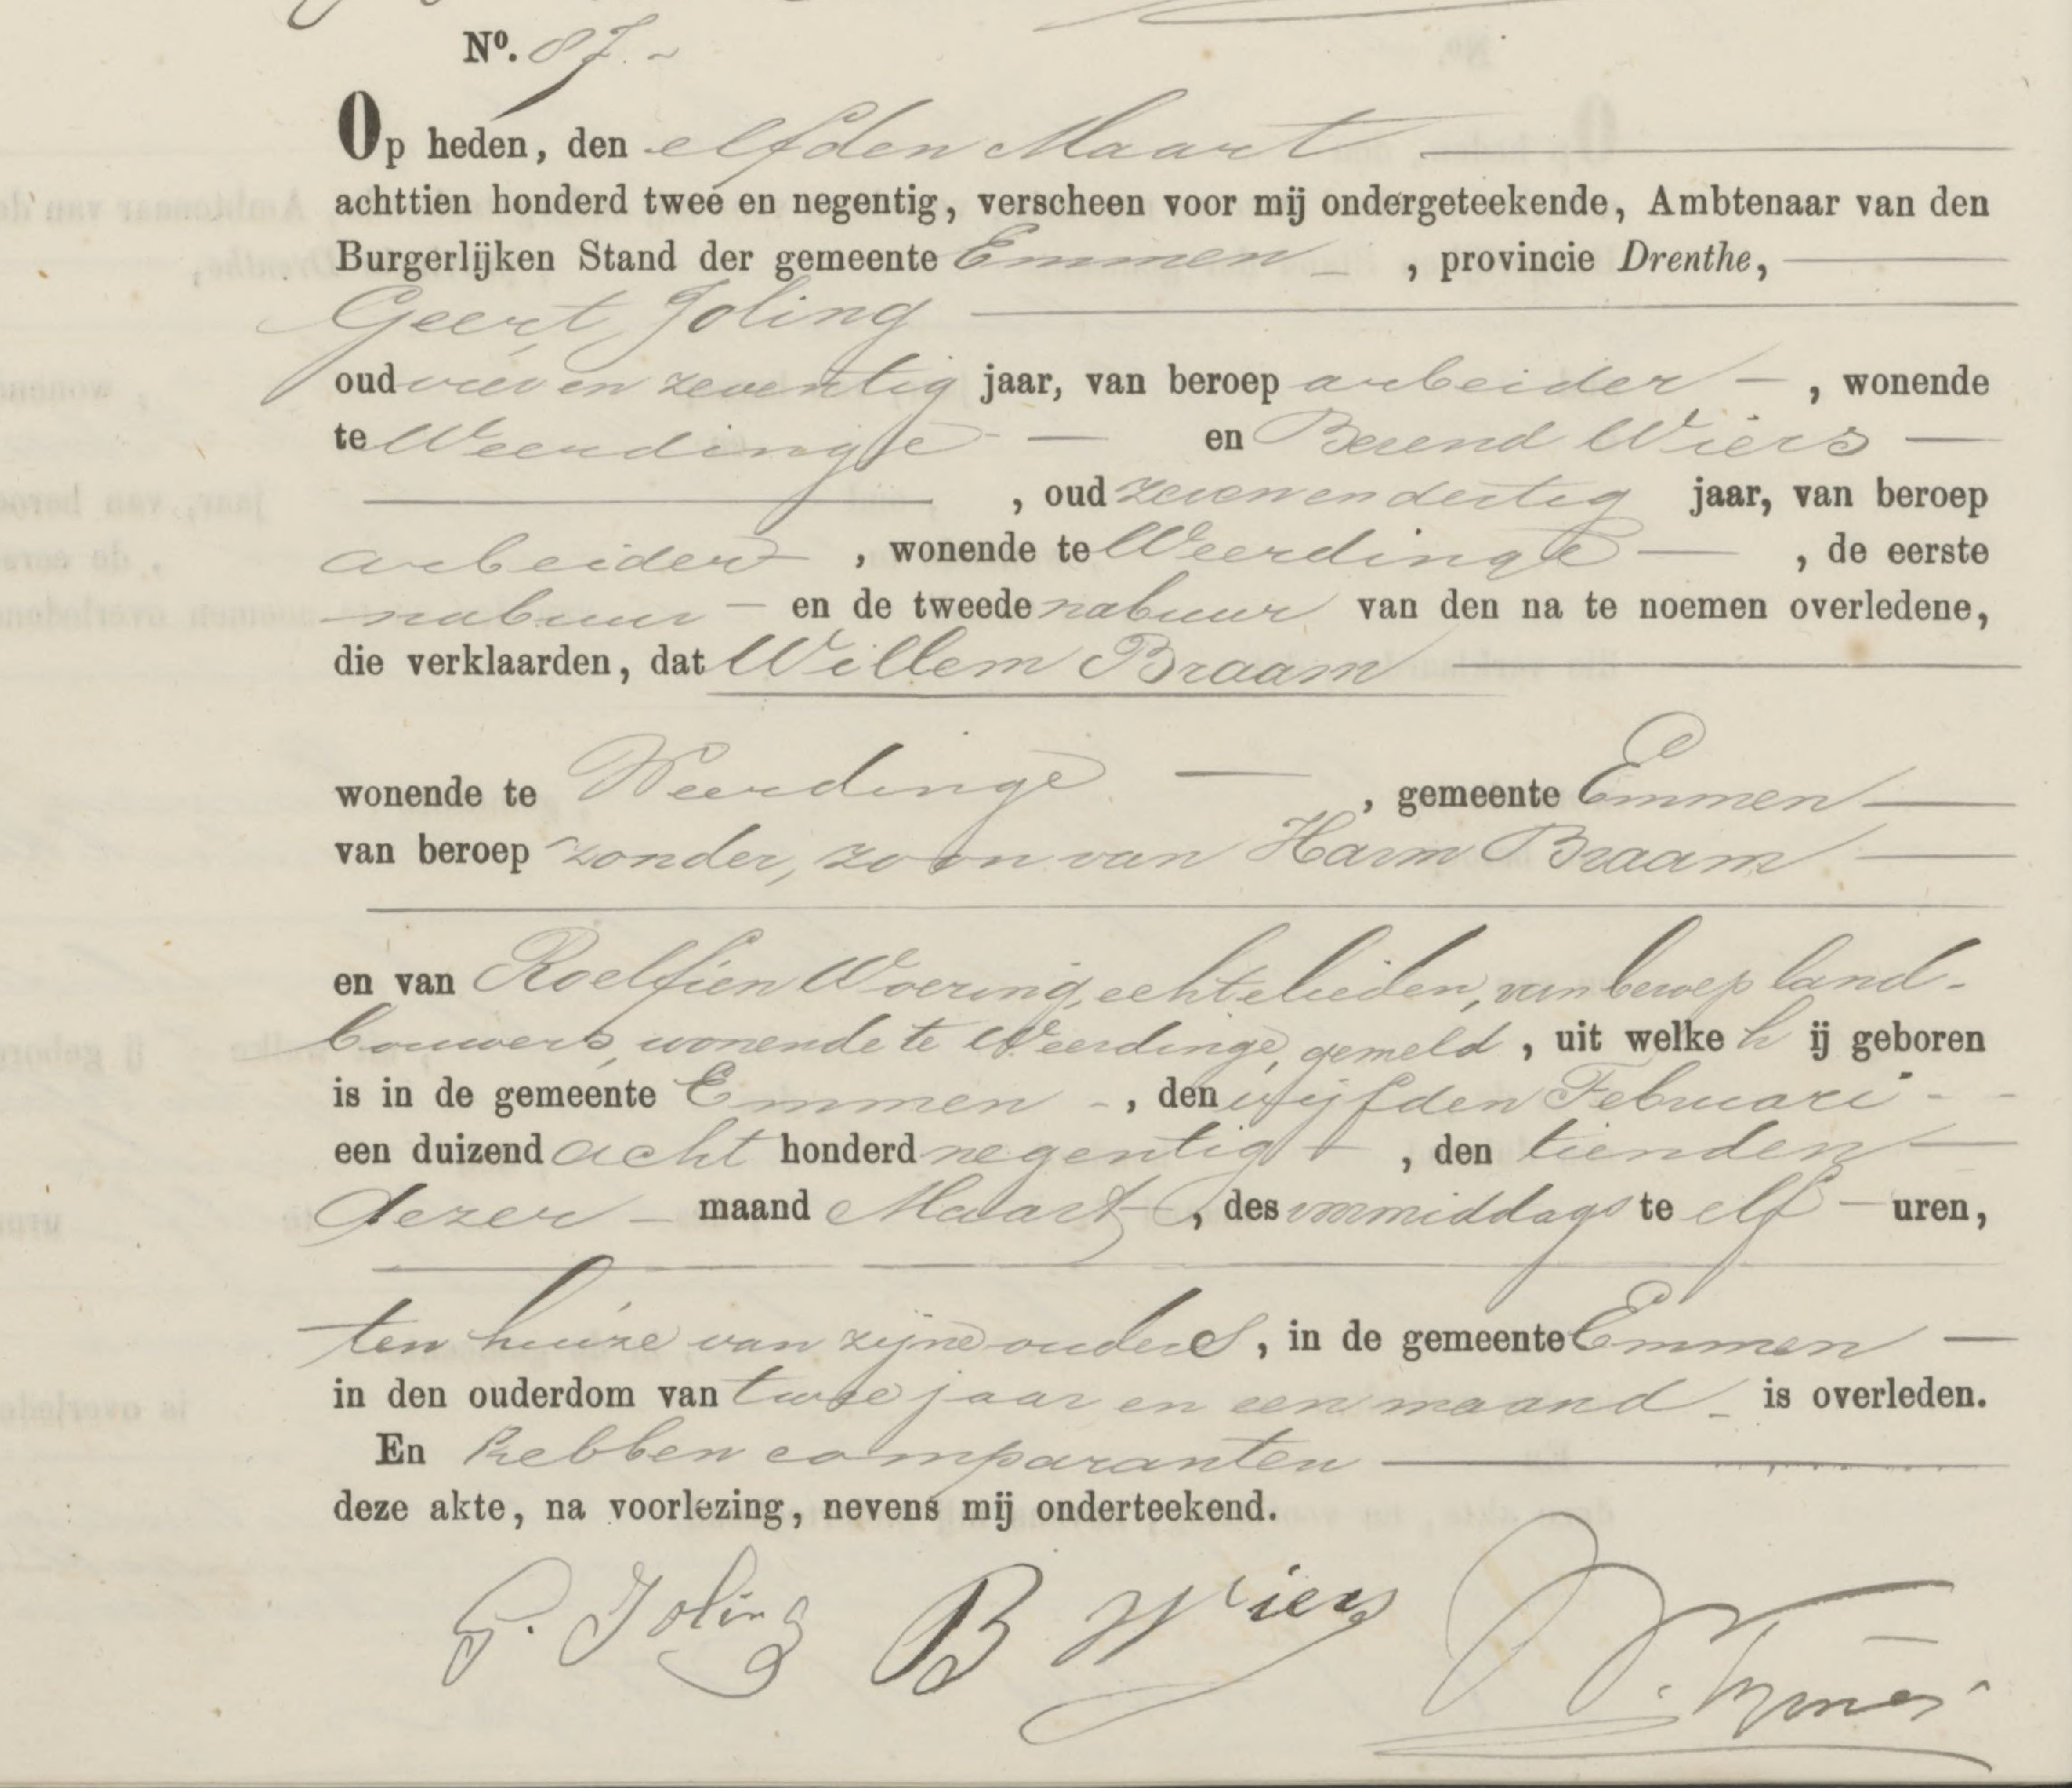 Nº. 87.
Op heden, den elfden Maart
achttien honderd twee en negentig, verscheen voor mij ondergeteekende, Ambtenaar van den
Burgerlijken Stand der gemeente Emmen, provincie Drenthe,
Geert Joling
oud vier en zeventig jaar, van beroep arbeider, wonende
te Weerdinge en Berend Wiers
, oud zeven en dertig jaar, van beroep
arbeider, wonende te Weerdinge, de eerste
nabuur en de tweede nabuur van den na te noemen overledene,
die verklaarden, dat Willem Braam
wonende te Weerdinge, gemeente Emmen
van beroep zonder, zoon van Harm Braam
en van Roelfien Woering, echtelieden, van beroep land-
bouwers, wonende te Weerdinge, gemeld, uit welke hij geboren
is in de gemeente Emmen -, den vijfden Februari
een duizend acht honderd negentig, den tienden
dezer maand Maart, des voormiddags te elf uren,
ten huize van zijne ouders, in de gemeente Emmen
in den ouderdom van twee jaar en een maand is overleden.
En hebben comparanten
deze akte, na voorlezing, nevens mij onderteekend.
G. Joling B Wiers